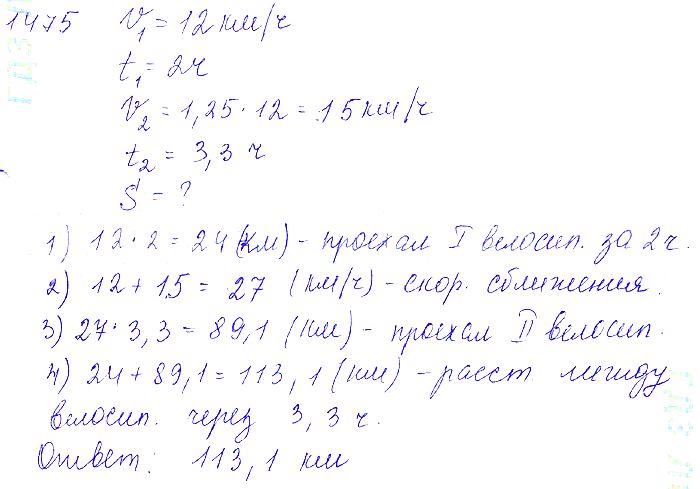 1475 V₁ = 12 км/ч
t₁ = 2ч
V₂ = 1,25 · 12 = 15 км/ч
t₂ = 3,3 ч
S = ?
1) 12 · 2 = 24 (км) – проехал I велосип. за 2ч.
2) 12 + 15 = 27 (км/ч) – скор. сближения.
3) 27 · 3,3 = 89,1 (км) – проехал II велосип.
4) 24 + 89,1 = 113,1 (км) – расст. между
велосип. через 3,3 ч.
Ответ: 113,1 км